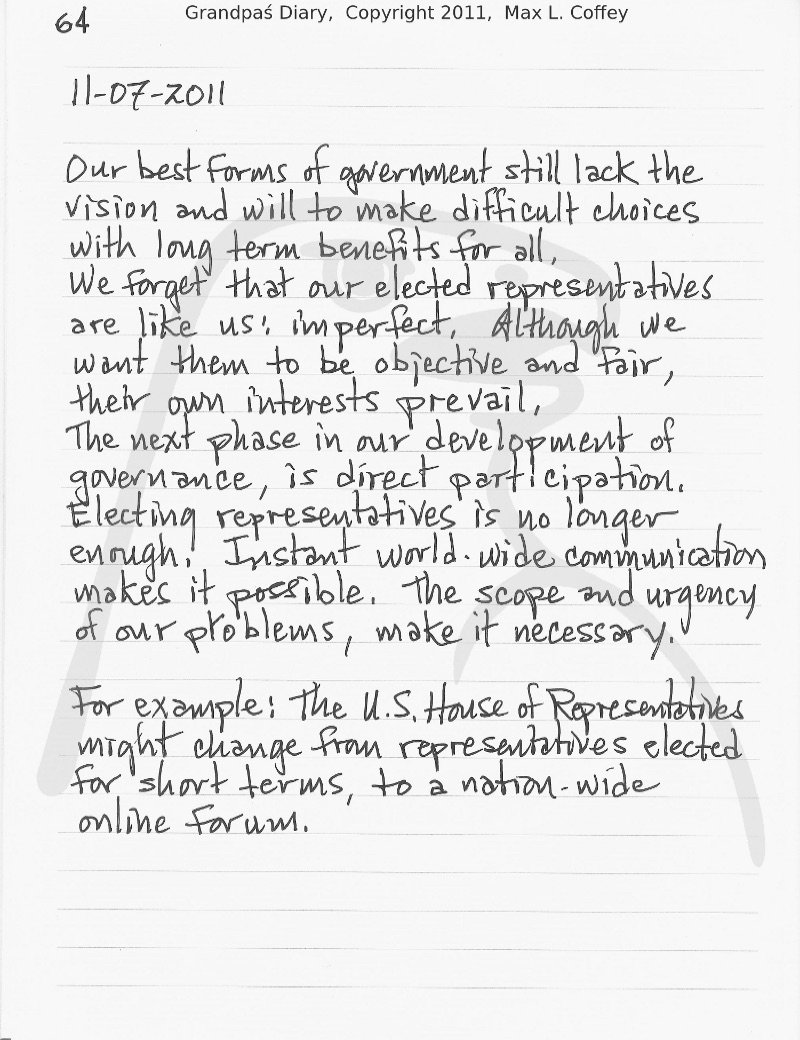 64
Grandpaś Diary, Copyright 2011, Max L. Coffey
11-07-2011
Our best forms of government still lack the
vision and will to make difficult choices
with long term benefits for all.
We forget that our elected representatives
are like us: imperfect. Although we
want them to be objective and fair,
their own interests prevail.
The next phase in our development of
governance, is direct participation.
Electing representatives is no longer
enough! Instant world-wide communication
makes it possible. The scope and urgency
of our problems, make it necessary.
For example: The U.S. House of Representatives
might change from representatives elected
for short terms, to a nation-wide
online forum.